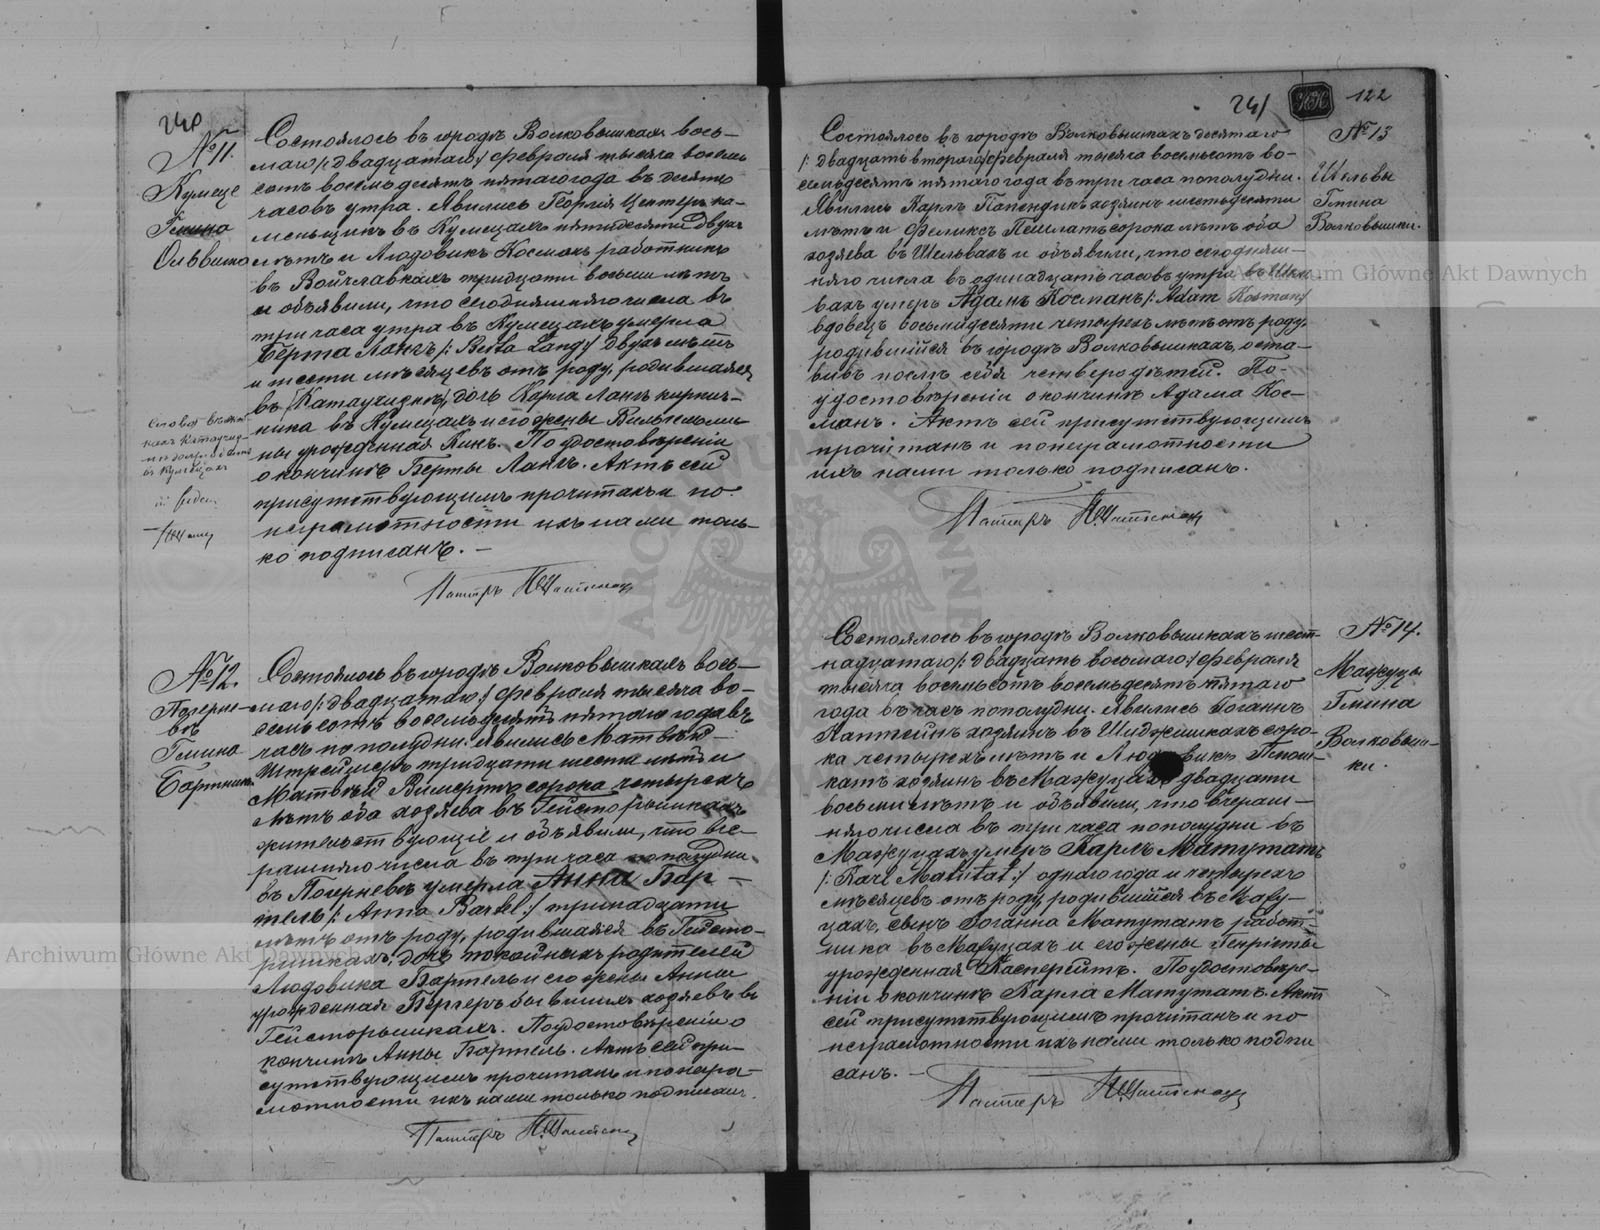 240
№ 11.
Кумеце
Гмина
Олввита
Состоялось въ городѣ Волковышкахъ вось-
маго /: двадцатаго :/ февраля тысяча восемь
сотъ восемьдесятъ пятаго года въ десять
часовъ утра. Явились Георгія Центеръ ка-
меньщикъ въ Кумецахъ пятидесяти двухъ
лѣтъ и Людовикъ Космахъ работникъ
въ Войчлавкахъ тридцати восьми лѣтъ
и объявили, что сегодняшняго числа въ
три часа утра въ Кумецахъ умерла
Берта Лангъ /: Berta Lang :/ двухъ лѣтъ
и шести мѣсяцевъ отъ роду, родившаяся
въ дочь Карла Лангъ кирпич-
ника въ Кумецахъ и его жены Вильгельми-
ны урожденная Кинъ. По удостовѣреніи
о кончинѣ Берты Лангъ. Актъ сей
присутствующимъ прочитанъ и по
неграмотности ихъ нами толь-
ко подписанъ. —
Пасторъ
№ 12.
Погерне-
въ
Гмина
Бартники
Состоялось въ городѣ Волковышкахъ вось-
маго /: двадцатаго :/ февраля тысяча во-
семь сотъ восемьдесятъ пятаго года въ
часъ по полудни. Явились Матвѣй
Штрейцисъ тридцати шести лѣтъ и
Матвѣй Вимертъ сорока четырехъ
лѣтъ оба хозяева въ Гейсторышкахъ
жительствующіе и объявили, что вче-
рашняго числа въ три часа по полудни
въ Погерневѣ умерла Анна Бар-
тель /: Anna Bartel :/ тринадцати
лѣтъ отъ роду, родившаяся въ Гейсто-
ришкахъ, дочь покойныхъ родителей
Людовика Бартель и его жены Анны
урожденная Бергеръ бывшихъ хозяевъ въ
Гейсторышкахъ. По удостовѣреніи о
кончинѣ Анны Бартель. Актъ сей при-
сутствующимъ прочитанъ и по негра-
мотности ихъ нами только подписанъ.
Пасторъ
241
122
№ 13
Шельвы
Гмина
Волковышки.
Состоялось въ городѣ Волковышкахъ десятаго
/: двадцать втораго :/ февраля тысяча восемьсотъ во-
семьдесятъ пятаго года въ три часа по полудни.
Явились Карлъ Папендикъ хозяинъ шестьдесяти
лѣтъ и Феликсъ Пешлатъ сорока лѣтъ оба
хозяева въ Шельвахъ и объявили, что сегодняш-
няго числа въ одинадцать часовъ утра въ Шель-
вахъ умеръ Адамъ Косманъ /: Adam Kosman :/
вдовецъ восьмидесяти четырехъ лѣтъ отъ роду,
родившійся въ городѣ Волковышкахъ, оста-
вивъ послѣ себя четверо дѣтей. По-
удостовѣреніи о кончинѣ Адама Кос-
манъ. Актъ сей присутствующимъ
прочитанъ и по неграмотности
ихъ нами только подписанъ.
Пасторъ
№ 14.
Мажуцы
Гмина
Волковыш-
ки.
Состоялось въ городѣ Волковышкахъ шест-
надцатаго /: двадцать восьмаго :/ февраля
тысяча восемьсотъ восемьдесятъ пятаго
года въ часъ по полудни. Явились Іоганнъ
Каптейнъ хозяинъ въ Шиджишкахъ соро-
ка четырехъ лѣтъ и Людовикъ
хозяинъ въ Мажуцахъ двадцати
восьми лѣтъ и объявили, что вчераш-
няго числа въ три часа по полудни въ
Мажуцахъ умеръ Карлъ Матутатъ
/: Karl Matutat :/ одного года и четырехъ
мѣсяцевъ отъ роду, родившійся въ Мажу-
цахъ, сынъ Іоганна Матутатъ работ-
ника въ Мажуцахъ и его жены Генріеты
урожденная Касперейтъ. По удостовѣре-
ніи о кончинѣ Карла Матутатъ. Актъ
сей присутствующимъ прочитанъ и по
неграмотности ихъ нами только подпи
санъ. —
Пасторъ
Archiwum Główne Akt Dawnych
Archiwum Główne Akt Dawnych